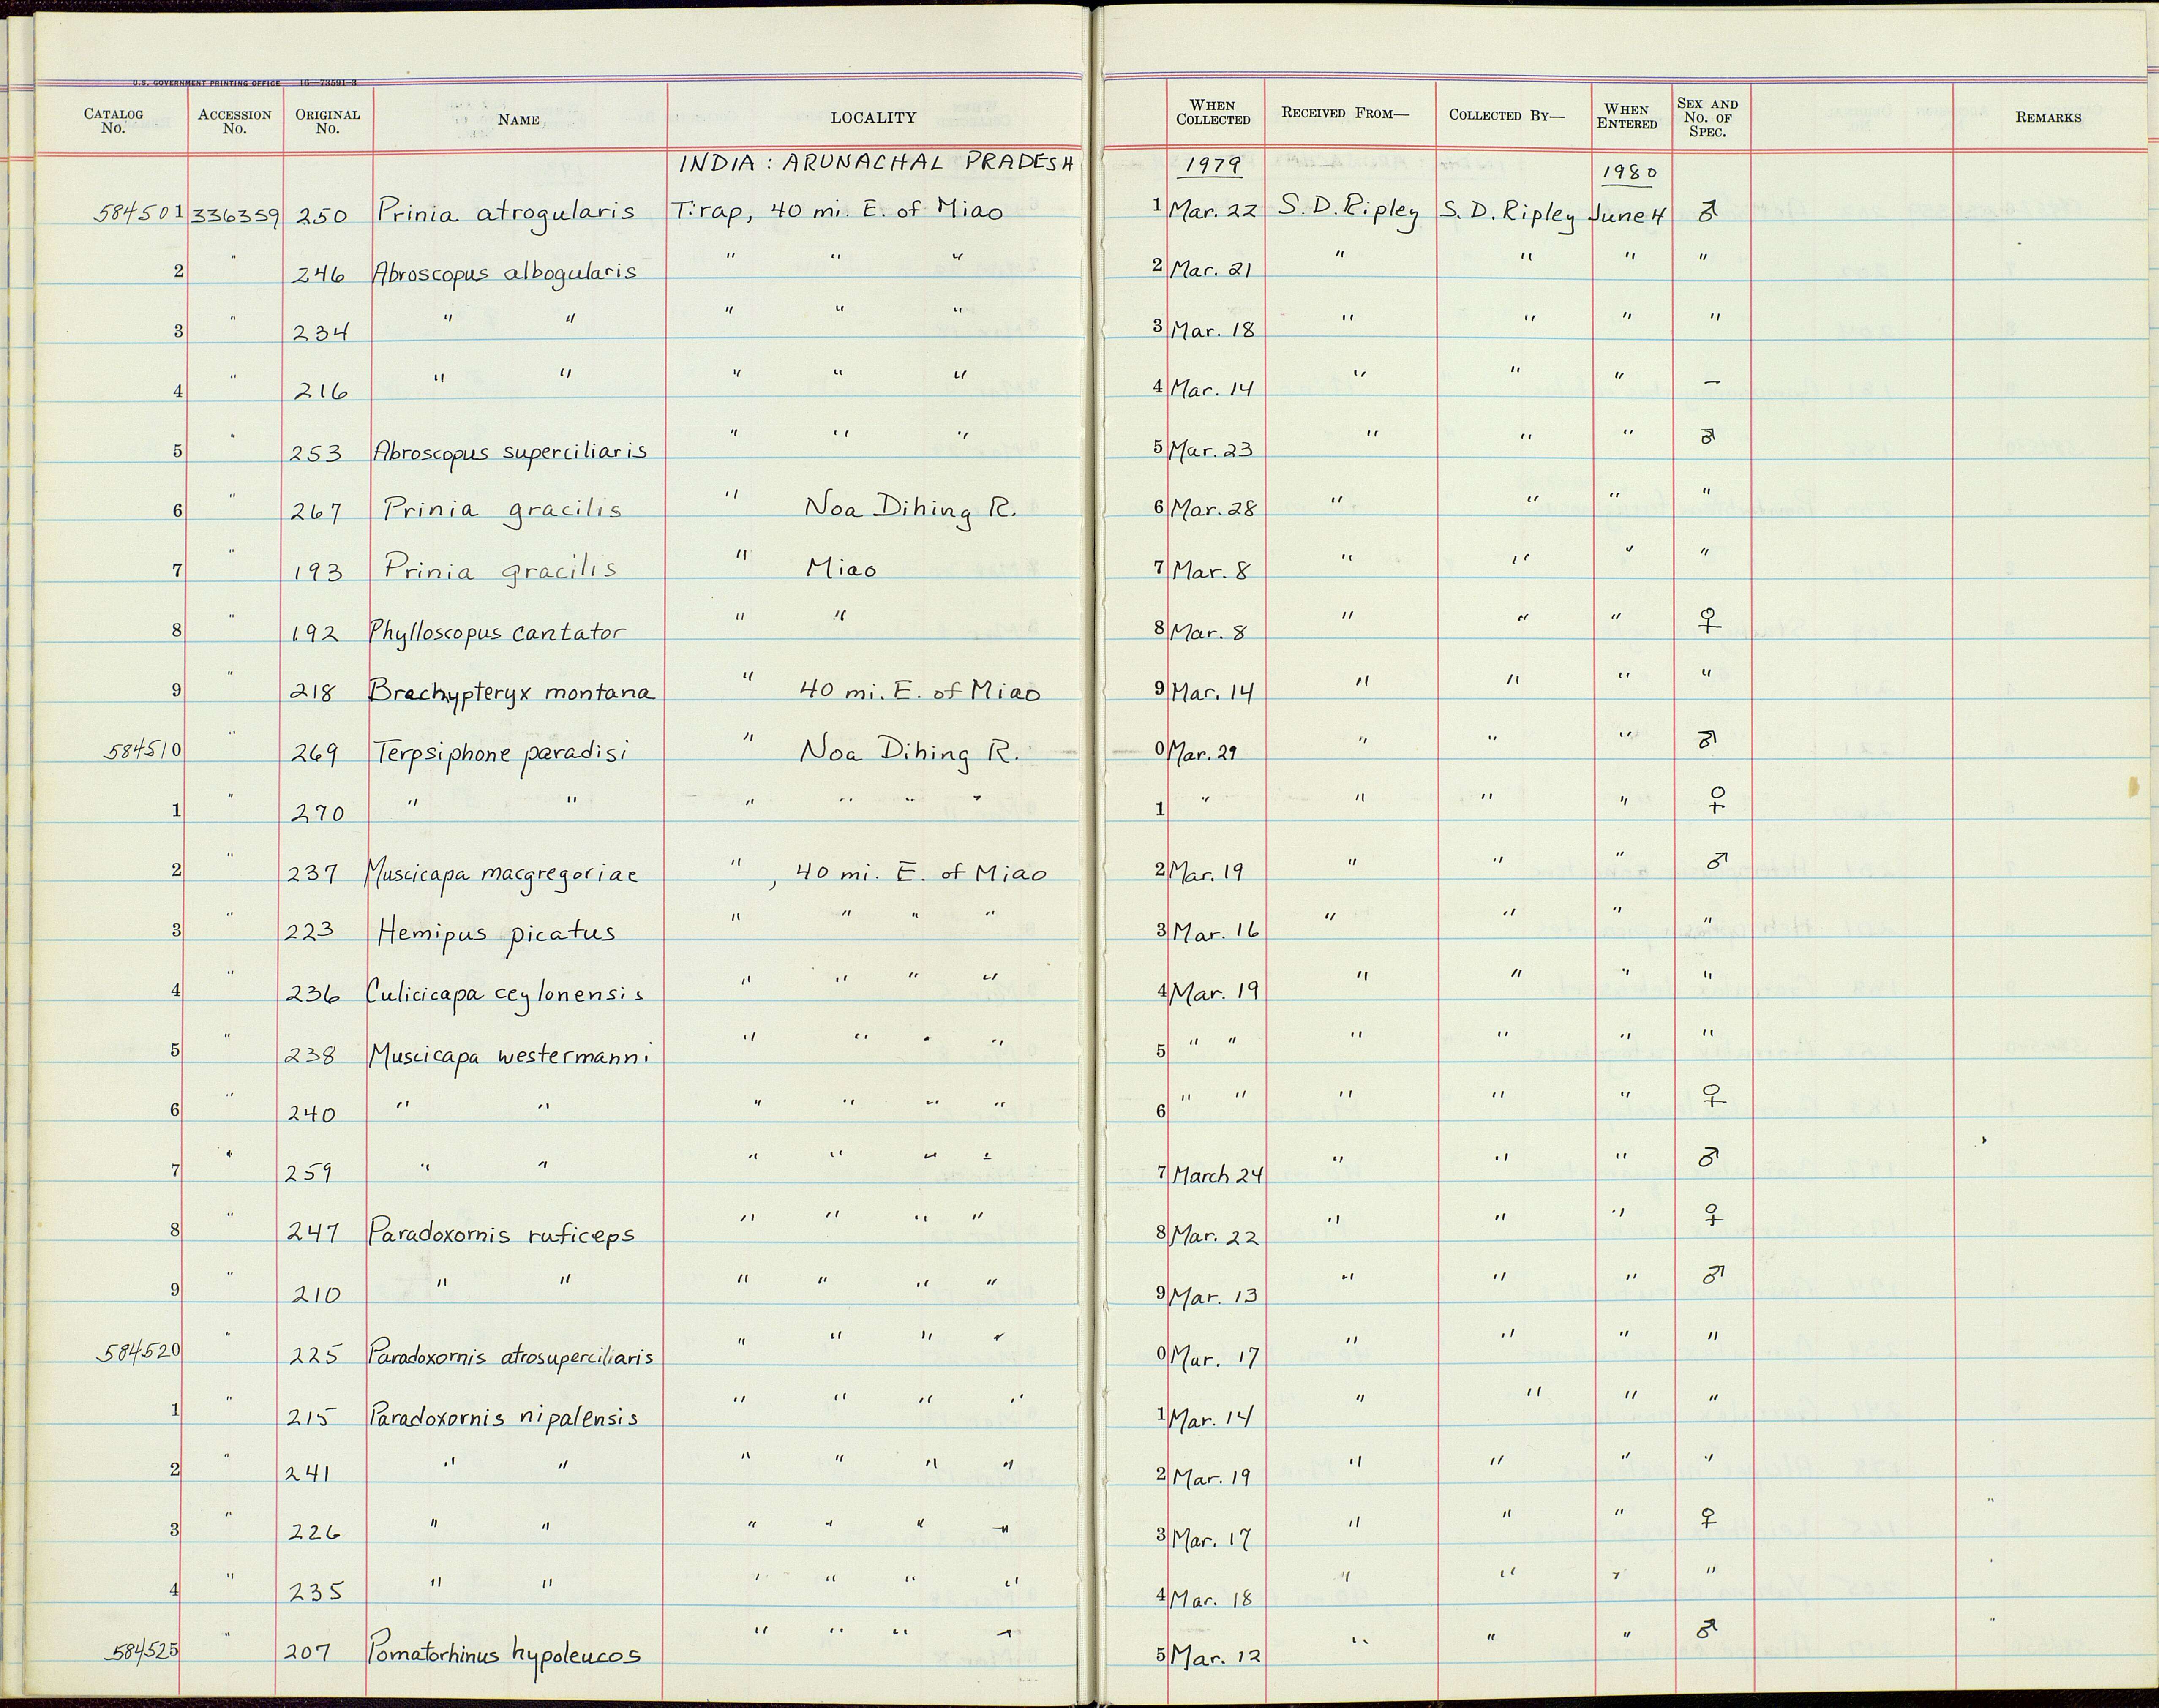 U.S. GOVERNMENT PRINTING OFFICE 16—73591-3
CATALOG No. ACCESSION No. ORIGINAL No. NAME LOCALITY WHEN COLLECTED RECEIVED FROM— COLLECTED BY— WHEN ENTERED SEX AND No. OF SPEC. REMARKS
INDIA : ARUNACHAL PRADESH 1979 1980
584501 336359 250 Prinia atrogularis Tirap, 40 mi. E. of Miao 1 Mar. 22 S. D. Ripley S. D. Ripley June 4 ♂
2 " 246 Abroscopus albogularis " " " 2 Mar. 21 " " " "
3 " 234 " " " " " 3 Mar. 18 " " " "
4 " 216 " " " " " 4 Mar. 14 " " " –
5 " 253 Abroscopus superciliaris " " " 5 Mar. 23 " " " ♂
6 " 267 Prinia gracilis " Noa Dihing R. 6 Mar. 28 " " " "
7 " 193 Prinia gracilis " Miao 7 Mar. 8 " " " "
8 " 192 Phylloscopus cantator " " 8 Mar. 8 " " " ♀
9 " 218 Brachypteryx montana " 40 mi. E. of Miao 9 Mar. 14 " " " "
584510 " 269 Terpsiphone paradisi " Noa Dihing R. 0 Mar. 29 " " " ♂
1 " 270 " " " " " " 1 " " " " ♀
2 " 237 Muscicapa macgregoriae " , 40 mi. E. of Miao 2 Mar. 19 " " " ♂
3 " 223 Hemipus picatus " " " " 3 Mar. 16 " " " "
4 " 236 Culicicapa ceylonensis " " " " 4 Mar. 19 " " " "
5 " 238 Muscicapa westermanni " " " " 5 " " " " " "
6 " 240 " " " " " " 6 " " " " " ♀
7 " 259 " " " " " " 7 March 24 " " " ♂
8 " 247 Paradoxornis ruficeps " " " " 8 Mar. 22 " " " ♀
9 " 210 " " " " " " 9 Mar. 13 " " " ♂
584520 " 225 Paradoxornis atrosuperciliaris " " " " 0 Mar. 17 " " " "
1 " 215 Paradoxornis nipalensis " " " " 1 Mar. 14 " " " "
2 " 241 " " " " " " 2 Mar. 19 " " " "
3 " 226 " " " " " " 3 Mar. 17 " " " ♀
4 " 235 " " " " " " 4 Mar. 18 " " " "
584525 " 207 Pomatorhinus hypoleucos " " " " 5 Mar. 12 " " " ♂